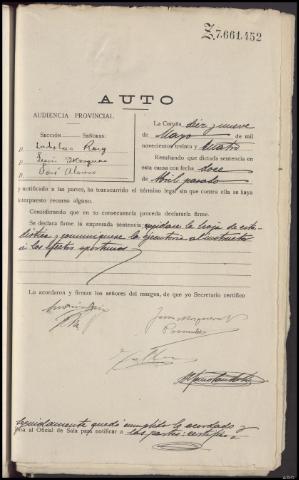 Z.7.661.452
AUTO
AUDIENCIA PROVINCIAL
SECCIÓN SEÑORES:
D. Ladislao Roig
D. Jesús Marquez
D. José Alonso
La Coruña, diez y nueve
de Mayo de mil
novecientos treinta y cuatro
Resultando que dictada sentencia en
esta causa con fecha doce
de Abril pasado
y notificado a las partes, ha transcurrido el término legal sin que contra ella se haya
interpuesto recurso alguno.
Considerando que en su consecuencia procede declararla firme.
Se declara firme la expresada sentencia la hoja de esta-
dística, comuníquese la ejecutoria al instructor
a los efectos oportunos
Lo acordaron y firman los señores del margen, de que yo Secretario certifico
Seguidamente queda cumplido lo acordado y
pasa al Oficial de Sala para notificar a las partes: certifico